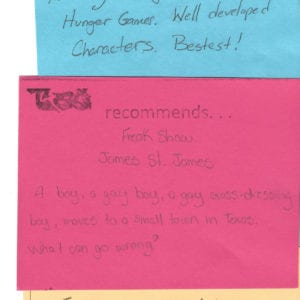 Hunger Games. Well developed
Characters. Bestest!
recommends...
Freak Show
James St. James
A boy, a gay boy, a gay cross-dressing
boy, moves to a small town in Texas.
What can go wrong?